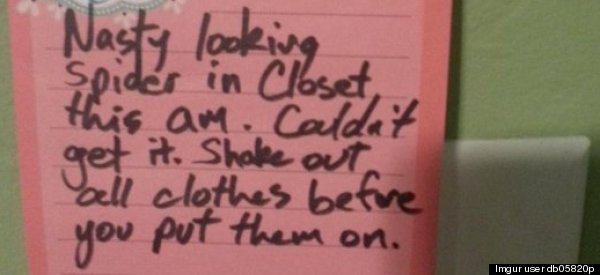 Nasty looking
Spider in Closet
this am. Couldn't
get it. Shake out
all clothes before
you put them on.
Imgur user db05820p